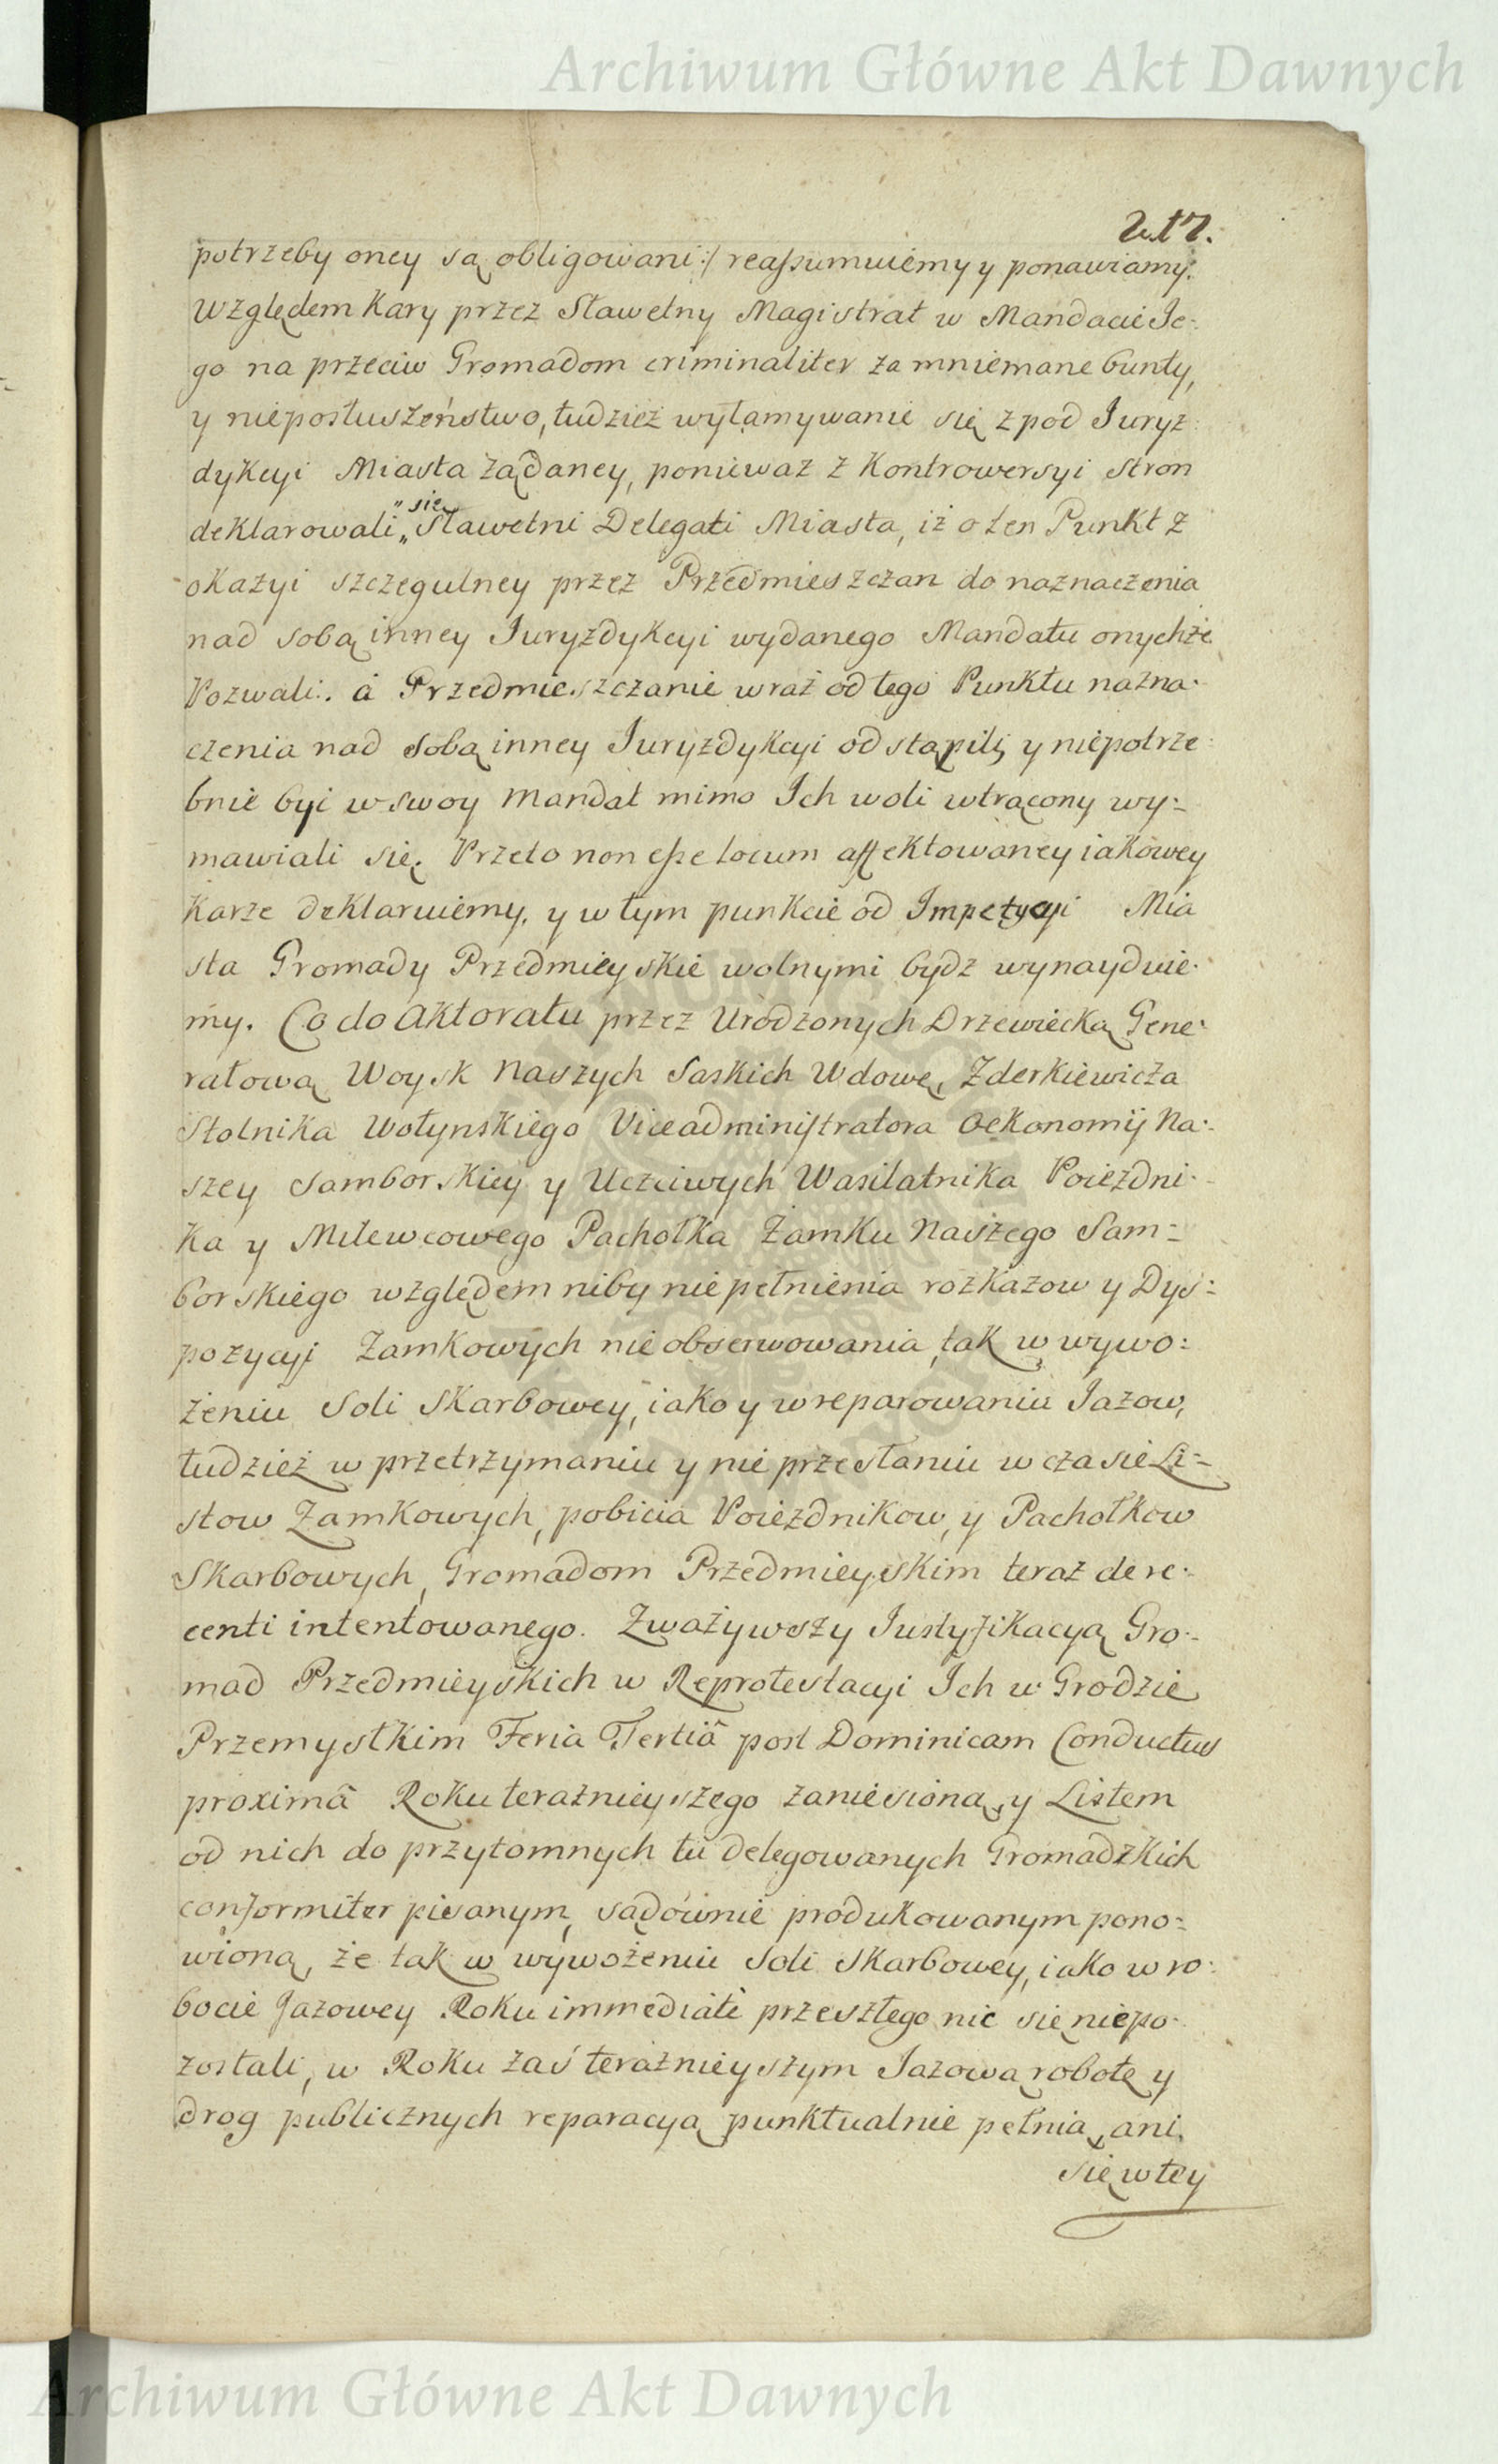 Archiwum Główne Akt Dawnych
217.
potrzeby oney są obligowani :/ reassumuiemy y ponawiamy.
Względem Kary przez Sławetny Magistrat w Mandacie Je-
go na przeciw Gromadom criminaliter za mniemane bunty,
y nieposłuszeństwo, tudzież wyłamywanie się z pod Juryz
dykcyi Miasta żądaney, ponieważ z Kontrowersyi stron
deklarowali „się„ Sławetni Delegati Miasta, iż o ten Punkt z
okazyi szczegulney przez Przedmieszczan do naznaczenia
nad sobą inney Juryzdykcyi wydanego Mandatu onychże
Pozwali. á Przedmieszczanie wraz od tego Punktu nazna-
czenia nad sobą inney Juryzdykcyi odstąpili, y niepotrze-
bnie był w swoy Mandat mimo Jch woli wtrącony wy-
mawiali się. Przeto non esse locum affektowaney iakowey
Karze deklaruiemy, y w tym punkcie od Impetycyi Mia
sta Gromady Przedmieyskie wolnymi bydz wynayduie-
my. Co do Aktoratu przez Urodzonych Drzewiecką Gene-
rałową Woysk Naszych Saskich Wdowę, Zderkiewicza
Stolnika Wołynskiego Viceadministratora Oekonomij Na-
szey Samborskiey y Uczciwych Wasilatnika Poiezdni-
ka y Milewcowego Pachołka Zamku Naszego Sam-
borskiego względem niby niepełnienia rozkazow y Dys-
pozycyi Zamkowych nieobserwowania, tak w wywo-
żeniu Soli Skarbowey, iako y w reparowaniu Jazow,
tudzież w przetrzymaniu y nie przesłaniu w czasie Li-
stow Zamkowych, pobicia Poiezdnikow, y Pachołkow
Skarbowych, Gromadom Przedmieyskim teraz de re-
centi intentowanego. Zważywszy Justyfikacyą Gro-
mad Przedmieyskich w Reprotestacyi Jch w Grodzie
Przemyslkim Feria Tertiâ post Dominicam Conductus
proximâ Roku teraznieyszego zaniesioną, y Listem
od nich do przytomnych tu delegowanych Gromadzkich
conformiter pisanym, sądownie produkowanym pono-
wioną, że tak w wywożeniu Soli Skarbowey, iako w ro-
bocie Jazowey Roku immediatè przeszłego nic się niepo-
zostali, w Roku zaś teraznieyszym Jazową robotę y
drog publicznych reparacyą punktualnie pełnią, ani
się w tey
Archiwum Główne Akt Dawnych